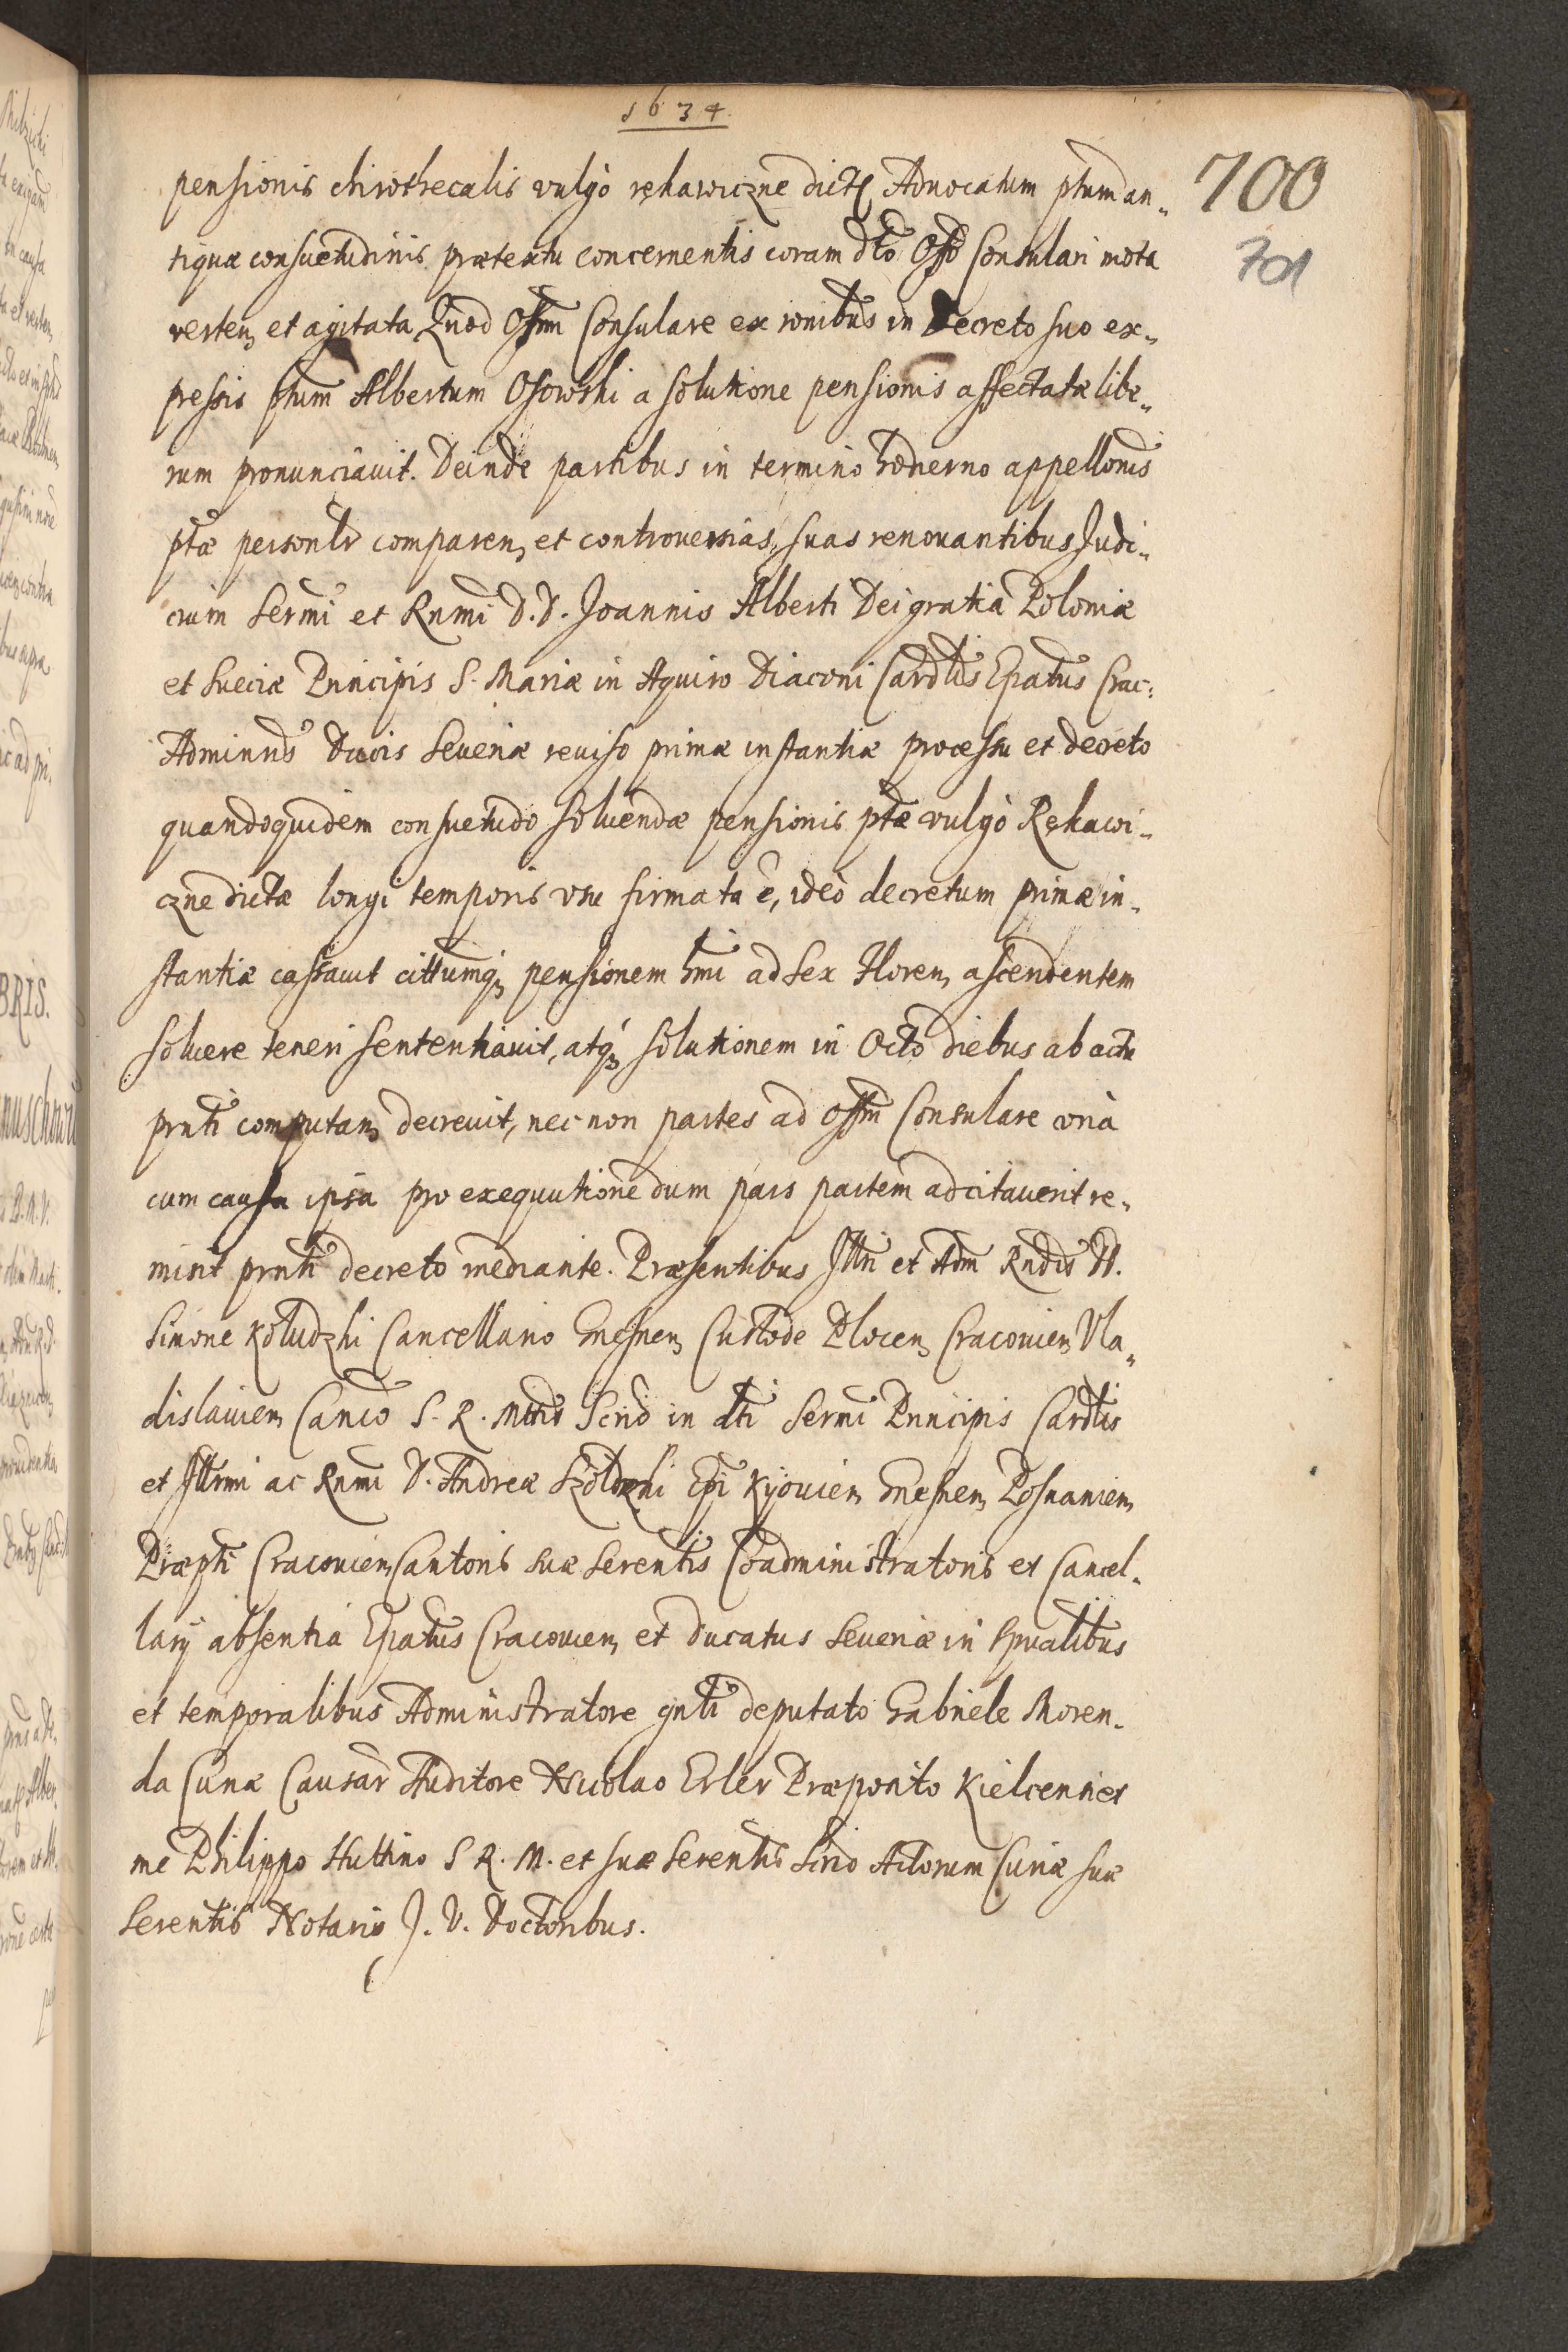 1634.
700
701
pensionis chirothecalis vulgò rękawiczne dictę Aduocatum ptum an„
tiquæ consuetudinis prætextu concernentis coram dto Offo Consulari mota
verten, et agitata Quod Offm Consulare ex ronibus in Decreto suo ex„
pressis ptum Albertum Osowski a solutione pensionis affectatæ libe„
rum pronunciauit. Deinde partibus in termino hodierno appellonis
ptæ personlr comparen, et controuersias suas renouantibus Judi„
cium Sermi et Rnmi D. D. Joannis Alberti Dei gratia Poloniæ
et Sueciæ Principis S. Mariæ in Aquiro Diaconi Cardlis Epatus Crac:
Adminris Ducis Seueriæ reuiso primæ instantiæ processu et decreto
quandoquidem consuetudo soluendæ pensionis ptæ vulgò Rękawi„
czne dictæ longi temporis vsu firmata ê, ideò decretum primæ in„
stantiæ cassauit cittumq, pensionem hmi ad sex Floren, ascendentem
soluere teneri sententiauit, atq, solutionem in Octo diebus ab actu
prnti computan, decreuit, nec non partes ad Offm Consulare vnà
cum causa ipsa pro exequutione dum pars partem adcitauerit re„
misit prnti decreto mediante. Præsentibus Illri et Adm Rndis D.
Simone Kołudzki Cancellario Gnesnen, Custode Plocen, Cracouien, Vla„
dislauien, Canco S. R. Mttis Scrio in dti Sermi Principis Cardlis
et Illrmi ac Rnmi D. Andreæ Szołdrski Epi Kyouien, Gnesnen, Posnanien,
Præpti Cracouien, Cantoris suæ Serentis Coadministratoris et Cancel„
larij absentia Epatus Cracouien, et Ducatus Seueriæ in spualibus
et temporalibus Administratore gnli deputato Gabriele Moren„
da Curiæ Causar Auditore Nicolao Erler Præposito Kielcensi et
me Philippo Huttino S R. M. et suæ Serentis Scrio Actorum Curiæ suæ
Serentis Notario J. V. Doctoribus.